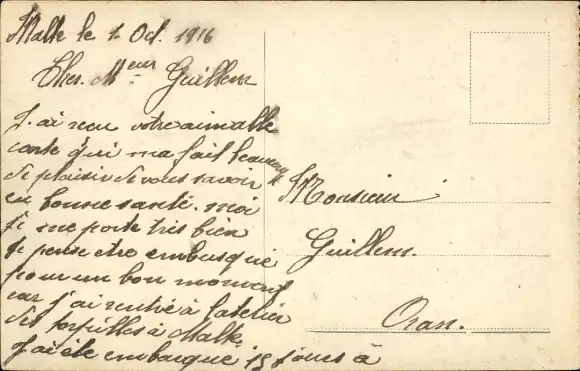 Malte le 1. Oct. 1916
Cher. Meur Guillem
J. ai recu votre aimable
carte qui ma fait beaucoup
de plaisir de vous savoir
en bonne santé. moi
je me porte très bien
je pense etre embusqué
pour un bon moment
car j'ai rentré à latelier
des torpilles à Malte.
J'ai ete embarqué 15 jours à
Monsieur
Guillem.
Oran.